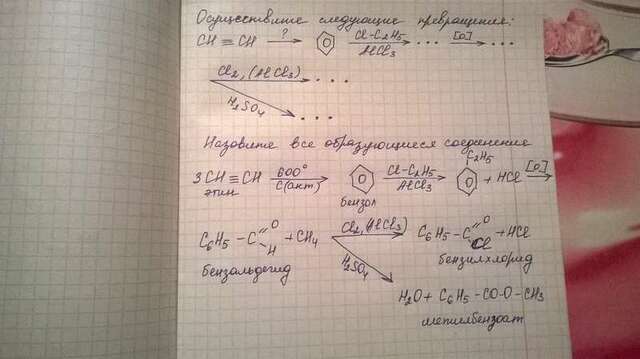 Осуществите следующие превращения:
CH ≡ CH —?→ ⌬ —Cl-C₂H₅/AlCl₃→ ... —[O]→ ...
Cl₂, (AlCl₃) ...
H₂SO₄ ...
Назовите все образующиеся соединение
C₂H₅
3CH ≡ CH —600°/C(акт)→ ⌬ —Cl-C₂H₅/AlCl₃→ ⌬ + HCl —[O]→
этин бензол
C₆H₅ - C =O - H + CH₄ —Cl₂, (AlCl₃)→ C₆H₅ - C =O - Cl + HCl
бензальдегид бензилхлорид
H₂SO₄
H₂O + C₆H₅ - CO - O - CH₃
метилбензоат